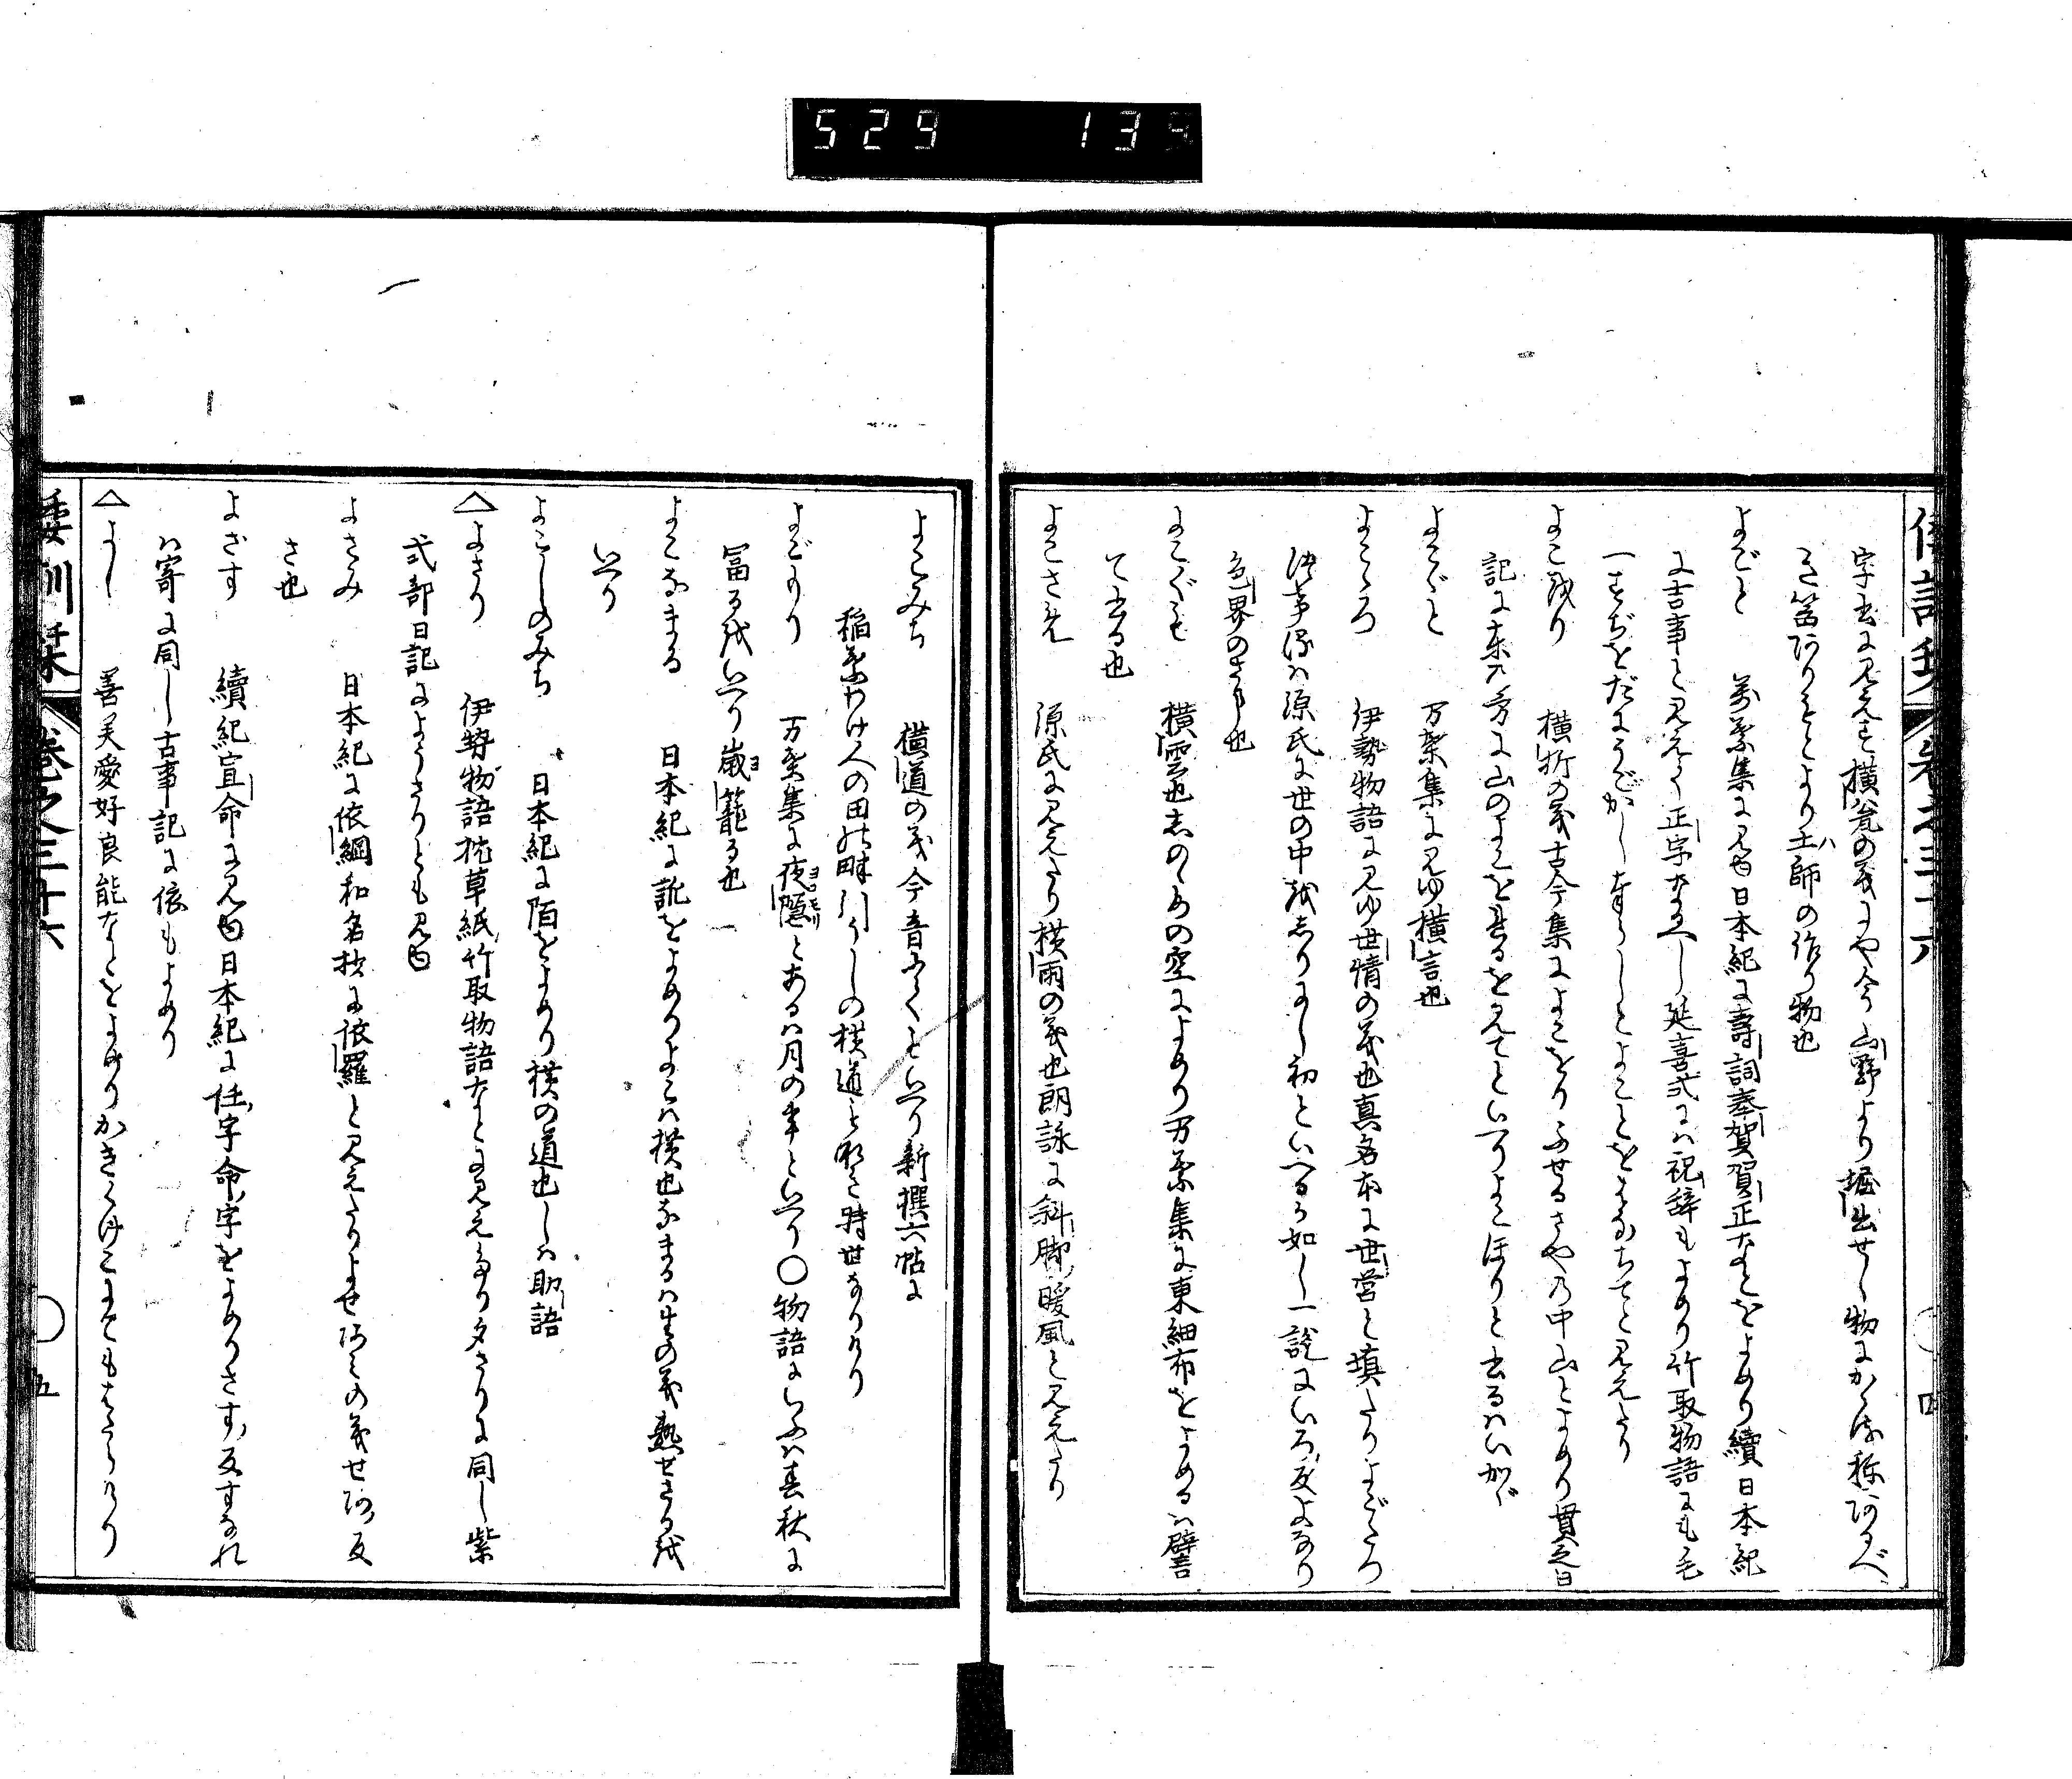 529 139
字書に見えす横瓮の義にや今山野より堀出せし物にかくる称あるべ
き筥ありもとより土師の作り物也
よごと 萬葉集に見ゆ日本紀に壽詞奉賀賀正なとをよめり續日本紀
に吉事と見えて正字なるへし延喜式には祝辞もよめり竹取物語にも毛
一すぢをだにうごかし奉らしとよことをはなちてと見えたり
よこをり 横折の義古今集によこをりふせるさや乃中山とよめり貫之日
記に東乃方に山のよこをれるを見てといへりよこほりと書るはいかが
よこごと 万葉集に見ゆ横言也
よごころ 伊勢物語に見ゆ世情の義也真名本に世営と填たりよごころ
つき事は源氏に世の中をしりにし初といへるか如し一説にいろ反よなり
色界のさま也
よこぐも 横雲也しのゝめの空によめり万葉集に東細布をよめるは譬
て書る也
よこさめ 源氏に見えたり横雨の義也朗詠に斜脚暖風と見えたり
倭訓栞 巻之三十六 四
よこみち 横道の義今音にてもいへり新撰六帖に
稲葉わけ人の田の畔引うしの横道もなき時世なりけり
よごもり 万葉集に夜隠とあるは月の事といへり〇物語にいふは春秋に
冨るをいへり歳籠る也
よこなまる 日本紀に訛をよめりよこは横也なまるは生の義熟せさるを
いへり
よこしのみち 日本紀に陌をよめり横の道也しは助語
△よさり 伊勢物語枕草紙竹取物語なとに見えたり夕さりに同し紫
式部日記にようさりとも見ゆ
よさみ 日本紀に依網和名抄に依羅と見えたりよせあみの義せあ反
さ也
よざす 續紀宣命に見ゆ日本紀に任字命字をよめりさす反すなれ
は寄に同し古事記に依もよめり
△よし 善美愛好良能なとをよめりかきくけこにてもはたらけり
倭訓栞 巻之三十六 五